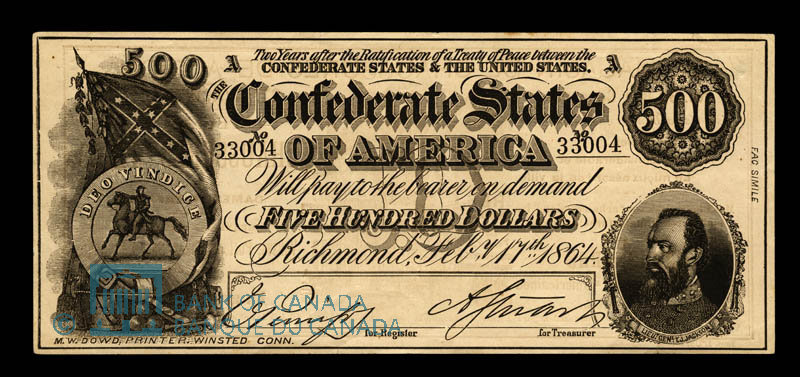 500 A Two Years after the Ratification of a Treaty of Peace between the A
CONFEDERATE STATES & THE UNITED STATES.
THE
Confederate States
500
No 33004
No 33004
OF AMERICA
Will pay to the bearer on demand
FIVE HUNDRED DOLLARS
Richmond, Feby 17th 1864
DEO VINDICE
FAC SIMILE
for Register
for Treasurer
LIEUT. GEN. T.J. JACKSON
M. W. DOWD, PRINTER, WINSTED CONN.
© BANK OF CANADA
BANQUE DU CANADA